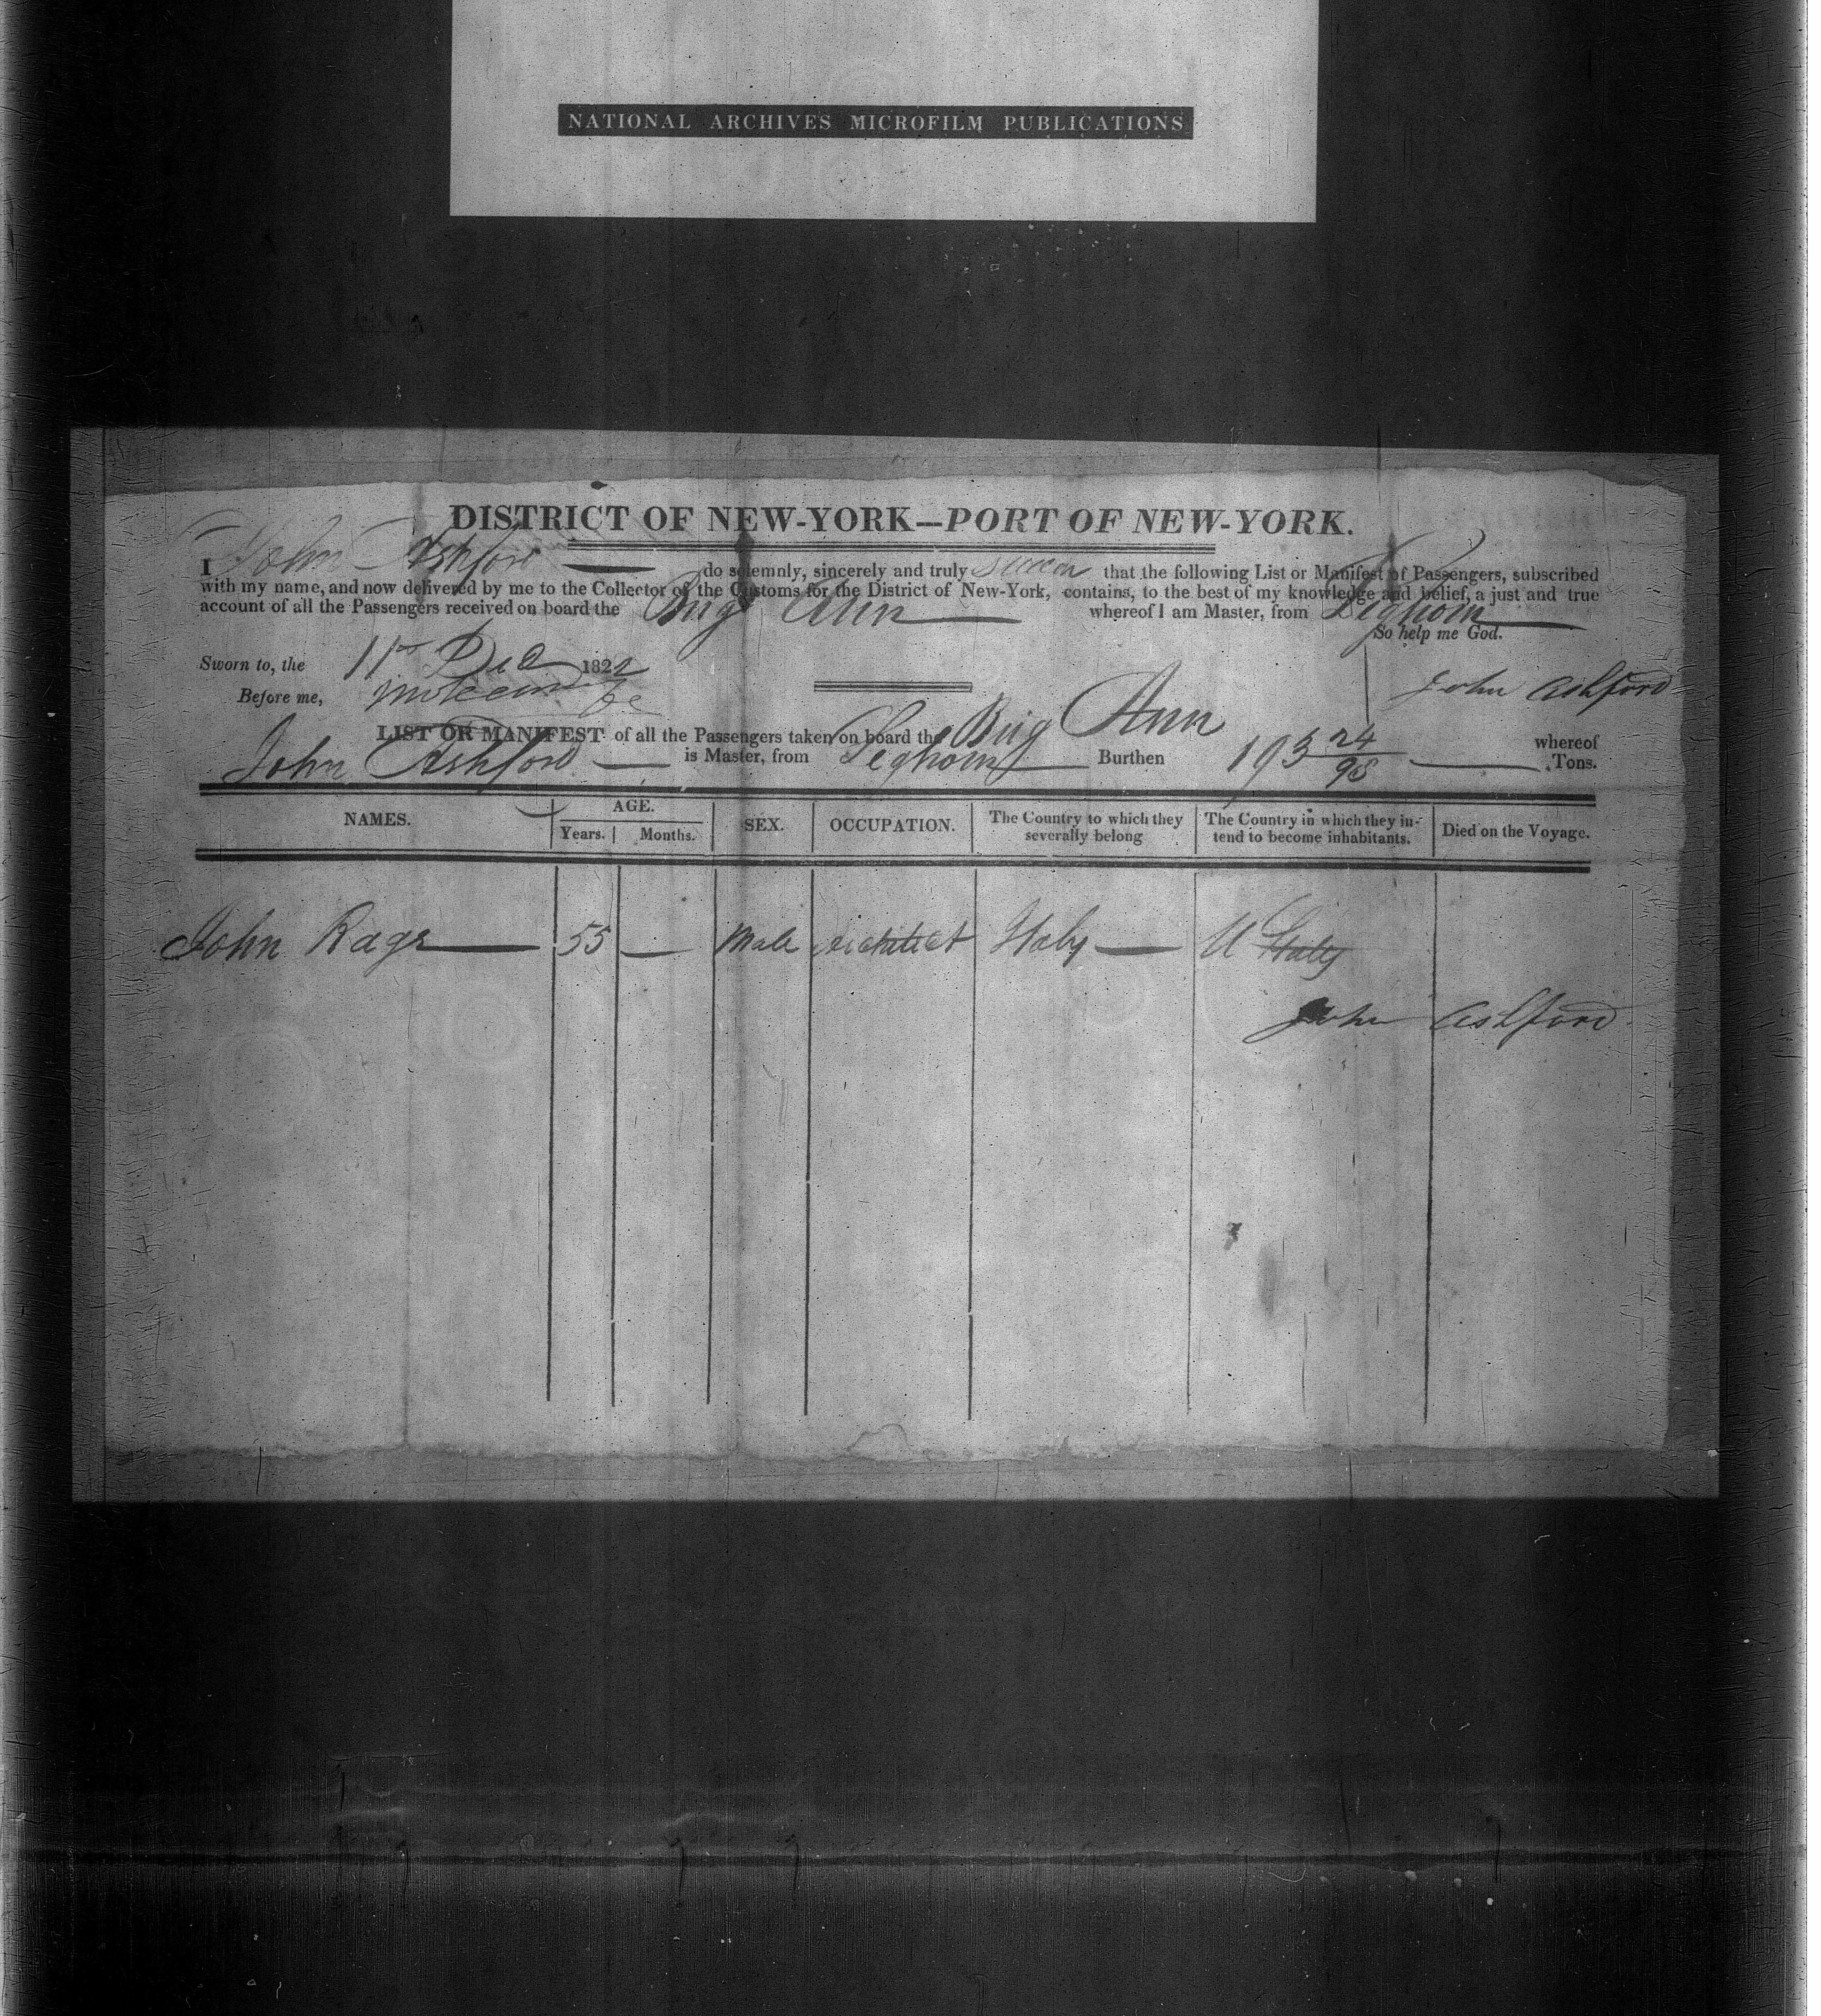 NATIONAL ARCHIVES MICROFILM PUBLICATIONS
DISTRICT OF NEW-YORK—PORT OF NEW-YORK.
I John Ashford do solemnly, sincerely and truly swear that the following List or Manifest of Passengers, subscribed
with my name, and now delivered by me to the Collector of the Customs for the District of New-York, contains, to the best of my knowledge and belief, a just and true
account of all the Passengers received on board the Brig Ann whereof I am Master, from Leghorn
So help me God.
Sworn to, the 11th Dec 1822
Before me,
John Ashford
LIST OR MANIFEST of all the Passengers taken on board the Brig Ann whereof
John Ashford is Master, from Leghorn Burthen 193 24/95 Tons.
NAMES. AGE. SEX. OCCUPATION. The Country to which they severally belong The Country in which they intend to become inhabitants. Died on the Voyage.
Years. Months.
John Rags 55 — Male Architect Italy U States
John Ashford